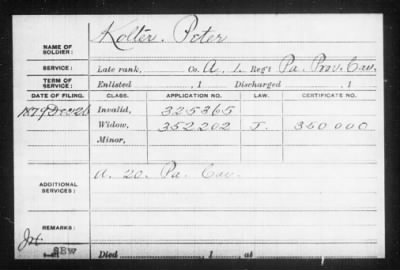 NAME OF SOLDIER: Kolter, Peter
SERVICE: Late rank, Co. A, 1. Reg't Pa. Prov. Cav.
TERM OF SERVICE: Enlisted , 1 Discharged , 1
DATE OF FILING. CLASS. APPLICATION NO. LAW. CERTIFICATE NO.
1879 Dec 26 Invalid, 325365
Widow, 352202 J. 350000
Minor,
ADDITIONAL SERVICES: A. 20. Pa. Cav.
REMARKS:
SBW
Died , 1 , at